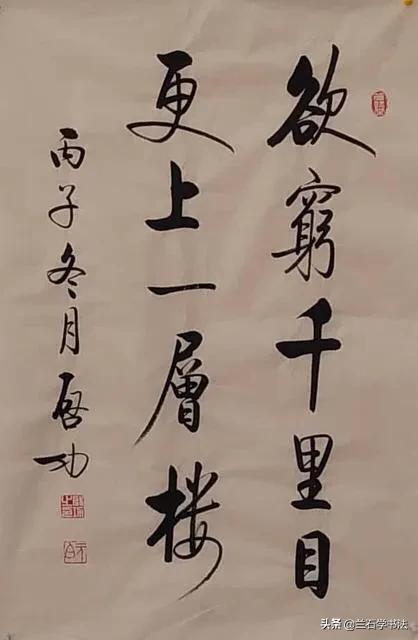 欲窮千里目
更上一層楼
丙子冬月启功
头条 @兰石学书法